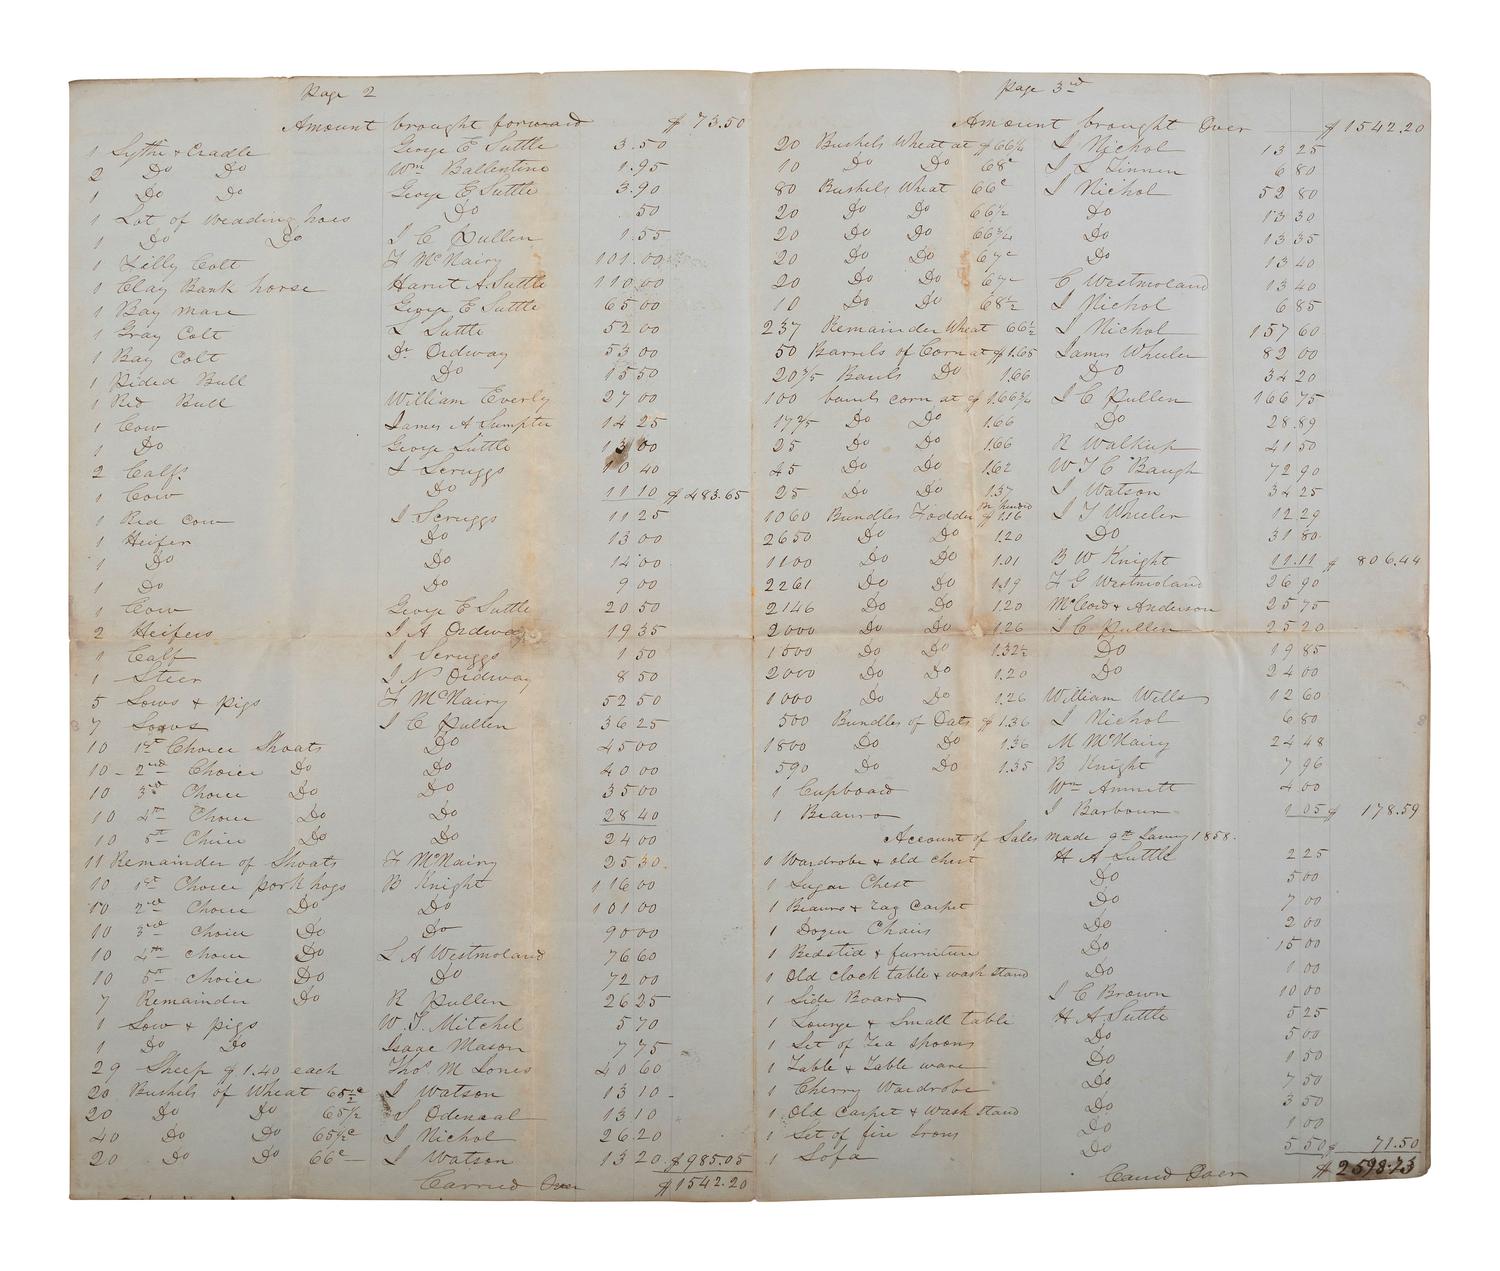 Page 2
Amount brought forward $ 73.50
1 Sythe & Cradle George E Suttle 3.50
2 Do Do Wm Ballentine 1.95
1 Do Do George E Suttle 3.90
1 Lot of Weading hoes Do .50
1 Do Do I C Pullen 1.55
1 Filly Colt F McNairy 101.00
1 Clay Bank horse Hariet A. Suttle 110.00
1 Bay mare George E Suttle 65 00
1 Gray Colt L Suttle 52 00
1 Bay Colt Dr Ordway 53 00
1 Pided Bull Do 15 50
1 Red Bull William Everly 27 00
1 Cow James A Sumpter 14 25
1 Do George Suttle 13 00
2 Calfs I Scruggs 10 40
1 Cow Do 11 10 $483.65
1 Red Cow I Scruggs 11 25
1 Heifer Do 13 00
1 Do Do 14 00
1 Do Do 9 00
1 Cow George E Suttle 20 50
2 Heifers I A Ordway 19 35
1 Calf I Scruggs 1 50
1 Steer I N Ordway 8 50
5 Sows & pigs F McNairy 52 50
7 Sows I C Pullen 36 25
10 1st Choice Shoats Do 45 00
10 - 2nd Choice Do Do 40 00
10 3rd Choice Do Do 35 00
10 4th Choice Do Do 28 40
10 5th Choice Do Do 24 00
11 Remainder of Shoats F McNairy 25 30
10 1st Choice pork hogs B Knight 116 00
10 2nd Choice Do Do 101 00
10 3rd Choice Do Do 90 00
10 4th Choice Do L A Westmoland 76 60
10 5th Choice Do Do 72 00
7 Remainder Do R Pullen 26 25
1 Sow & pigs W. J. Mitchel 5 70
1 Do Do Isaac Mason 7 75
29 Sheep $1.40 each Thos M Jones 40 60
20 Bushels of Wheat 65½c I Watson 13 10
20 Do Do 65½ S Odeneal 13 10
40 Do Do 65½c I Nichol 26.20
20 Do Do 66c I Watson 13 20 $985.05
Carried Over $1542.20
Page 3rd
Amount brought Over $1542.20
20 Bushels Wheat at $66¼ I Nichol 13 25
10 Do Do 68c I L Zinnen 6 80
80 Bushels Wheat 66c I Nichol 52 80
20 Do Do 66½ Do 13 30
20 Do Do 66¾ Do 13 35
20 Do Do 67c Do 13 40
20 Do Do 67c C Westmoland 13 40
10 Do Do 68½ I Nichol 6 85
237 Remainder Wheat 66½ I Nichol 157 60
50 Barrels of Corn at $1.65 James Wheeler 82 00
20 3/5 Barrels Do 1.66 Do 34 20
100 barrels corn at $1.66¾ I C Pullen 166 75
17 2/5 Do Do 1.66 Do 28.89
25 Do Do 1.66 R Walkup 41 50
45 Do Do 1.62 W T C Baugh 72 90
25 Do Do 1.37 I Watson 34 25
1060 Bundles Fodder Per Hundred $1.16 I T Wheeler 12.29
2650 Do Do 1.20 Do 31 80
1100 Do Do 1.01 B W Knight 11.11 $ 806.44
2261 Do Do 1.19 F G Westmoland 26 90
2146 Do Do 1.20 McCord & Anderson 25 75
2000 Do Do 1.26 I C Pullen 25 20
1500 Do Do 1.32½ Do 19 85
2000 Do Do 1.20 Do 24 00
1000 Do Do 1.26 William Wells 12 60
500 Bundles of Oats $1.36 I Nichol 6 80
1800 Do Do 1.36 M McNairy 24 48
590 Do Do 1.35 B Knight 7 96
1 Cupboard Wm Amnett 4 00
1 Beauro I Barbour 1 05 $ 178.59
Account of Sales made 9th Janry 1858.
1 Wardrobe & old chest H A Suttle 2 25
1 Sugar Chest Do 5 00
1 Beauro & rag Carpet Do 7 00
1 Dozen Chairs Do 2 00
1 Bedsted & furniture Do 15 00
1 Old clock table & wash stand Do 1 00
1 Side Board I C Brown 10 00
1 Lounge & Small table H A Suttle 5 25
1 Set of Tea spoons Do 5 00
1 Table & Table ware Do 1 50
1 Cherry Wardrobe Do 7 50
1 Old Carpet & Wash stand Do 3 50
1 Set of fire Irons Do 1 00
1 Sofa Do 5 50 $ 71.50
Carrid Over $ 2598.73